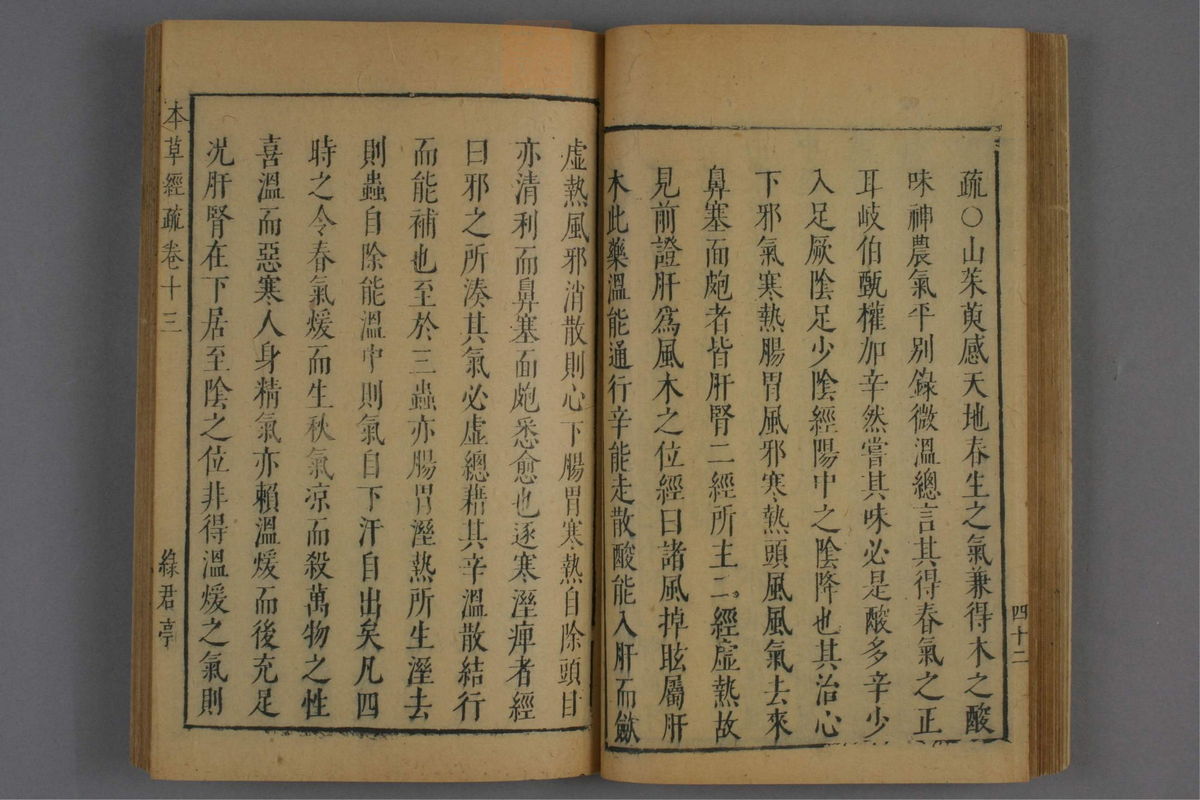 疏○山茱萸感天地春生之氣兼得木之酸
味神農氣平別錄微溫總言其得春氣之正
耳岐伯甄權加辛然嘗其味必是酸多辛少
入足厥陰足少陰經陽中之陰降也其治心
下邪氣寒熱腸胃風邪寒熱頭風風氣去來
鼻塞面皰者皆肝腎二經所主二經虛熱故
見前證肝為風木之位經曰諸風掉眩屬肝
木此藥溫能通行辛能走散酸能入肝而斂
四十二
虛熱風邪消散則心下腸胃寒熱自除頭目
亦清利而鼻塞面皰悉愈也逐寒溼痺者經
曰邪之所湊其氣必虛總藉其辛溫散結行
而能補也至於三蟲亦腸胃溼熱所生溼去
則蟲自除能溫中則氣自下汗自出矣凡四
時之令春氣煖而生秋氣凉而殺萬物之性
喜溫而惡寒人身精氣亦賴溫煖而後充足
況肝腎在下居至陰之位非得溫煖之氣則
本草經疏 卷十三 綠君亭